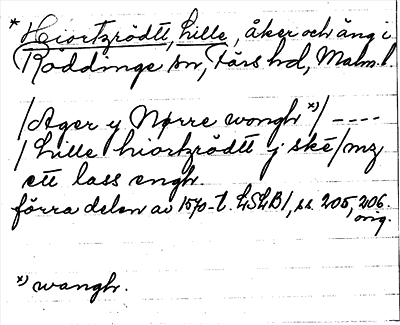 * Hiortzrödtt, lille, åker och äng i
Röddinge sn, Färs hd, Malm. l.
/Ager y Nørre wongh x)/ ----
/ Lille hiortzrödtt j ske/mz
ett lass engh.
förra delen av 1570-t. LSLB1, ss. 205, 206.
orig.
x) wangh.